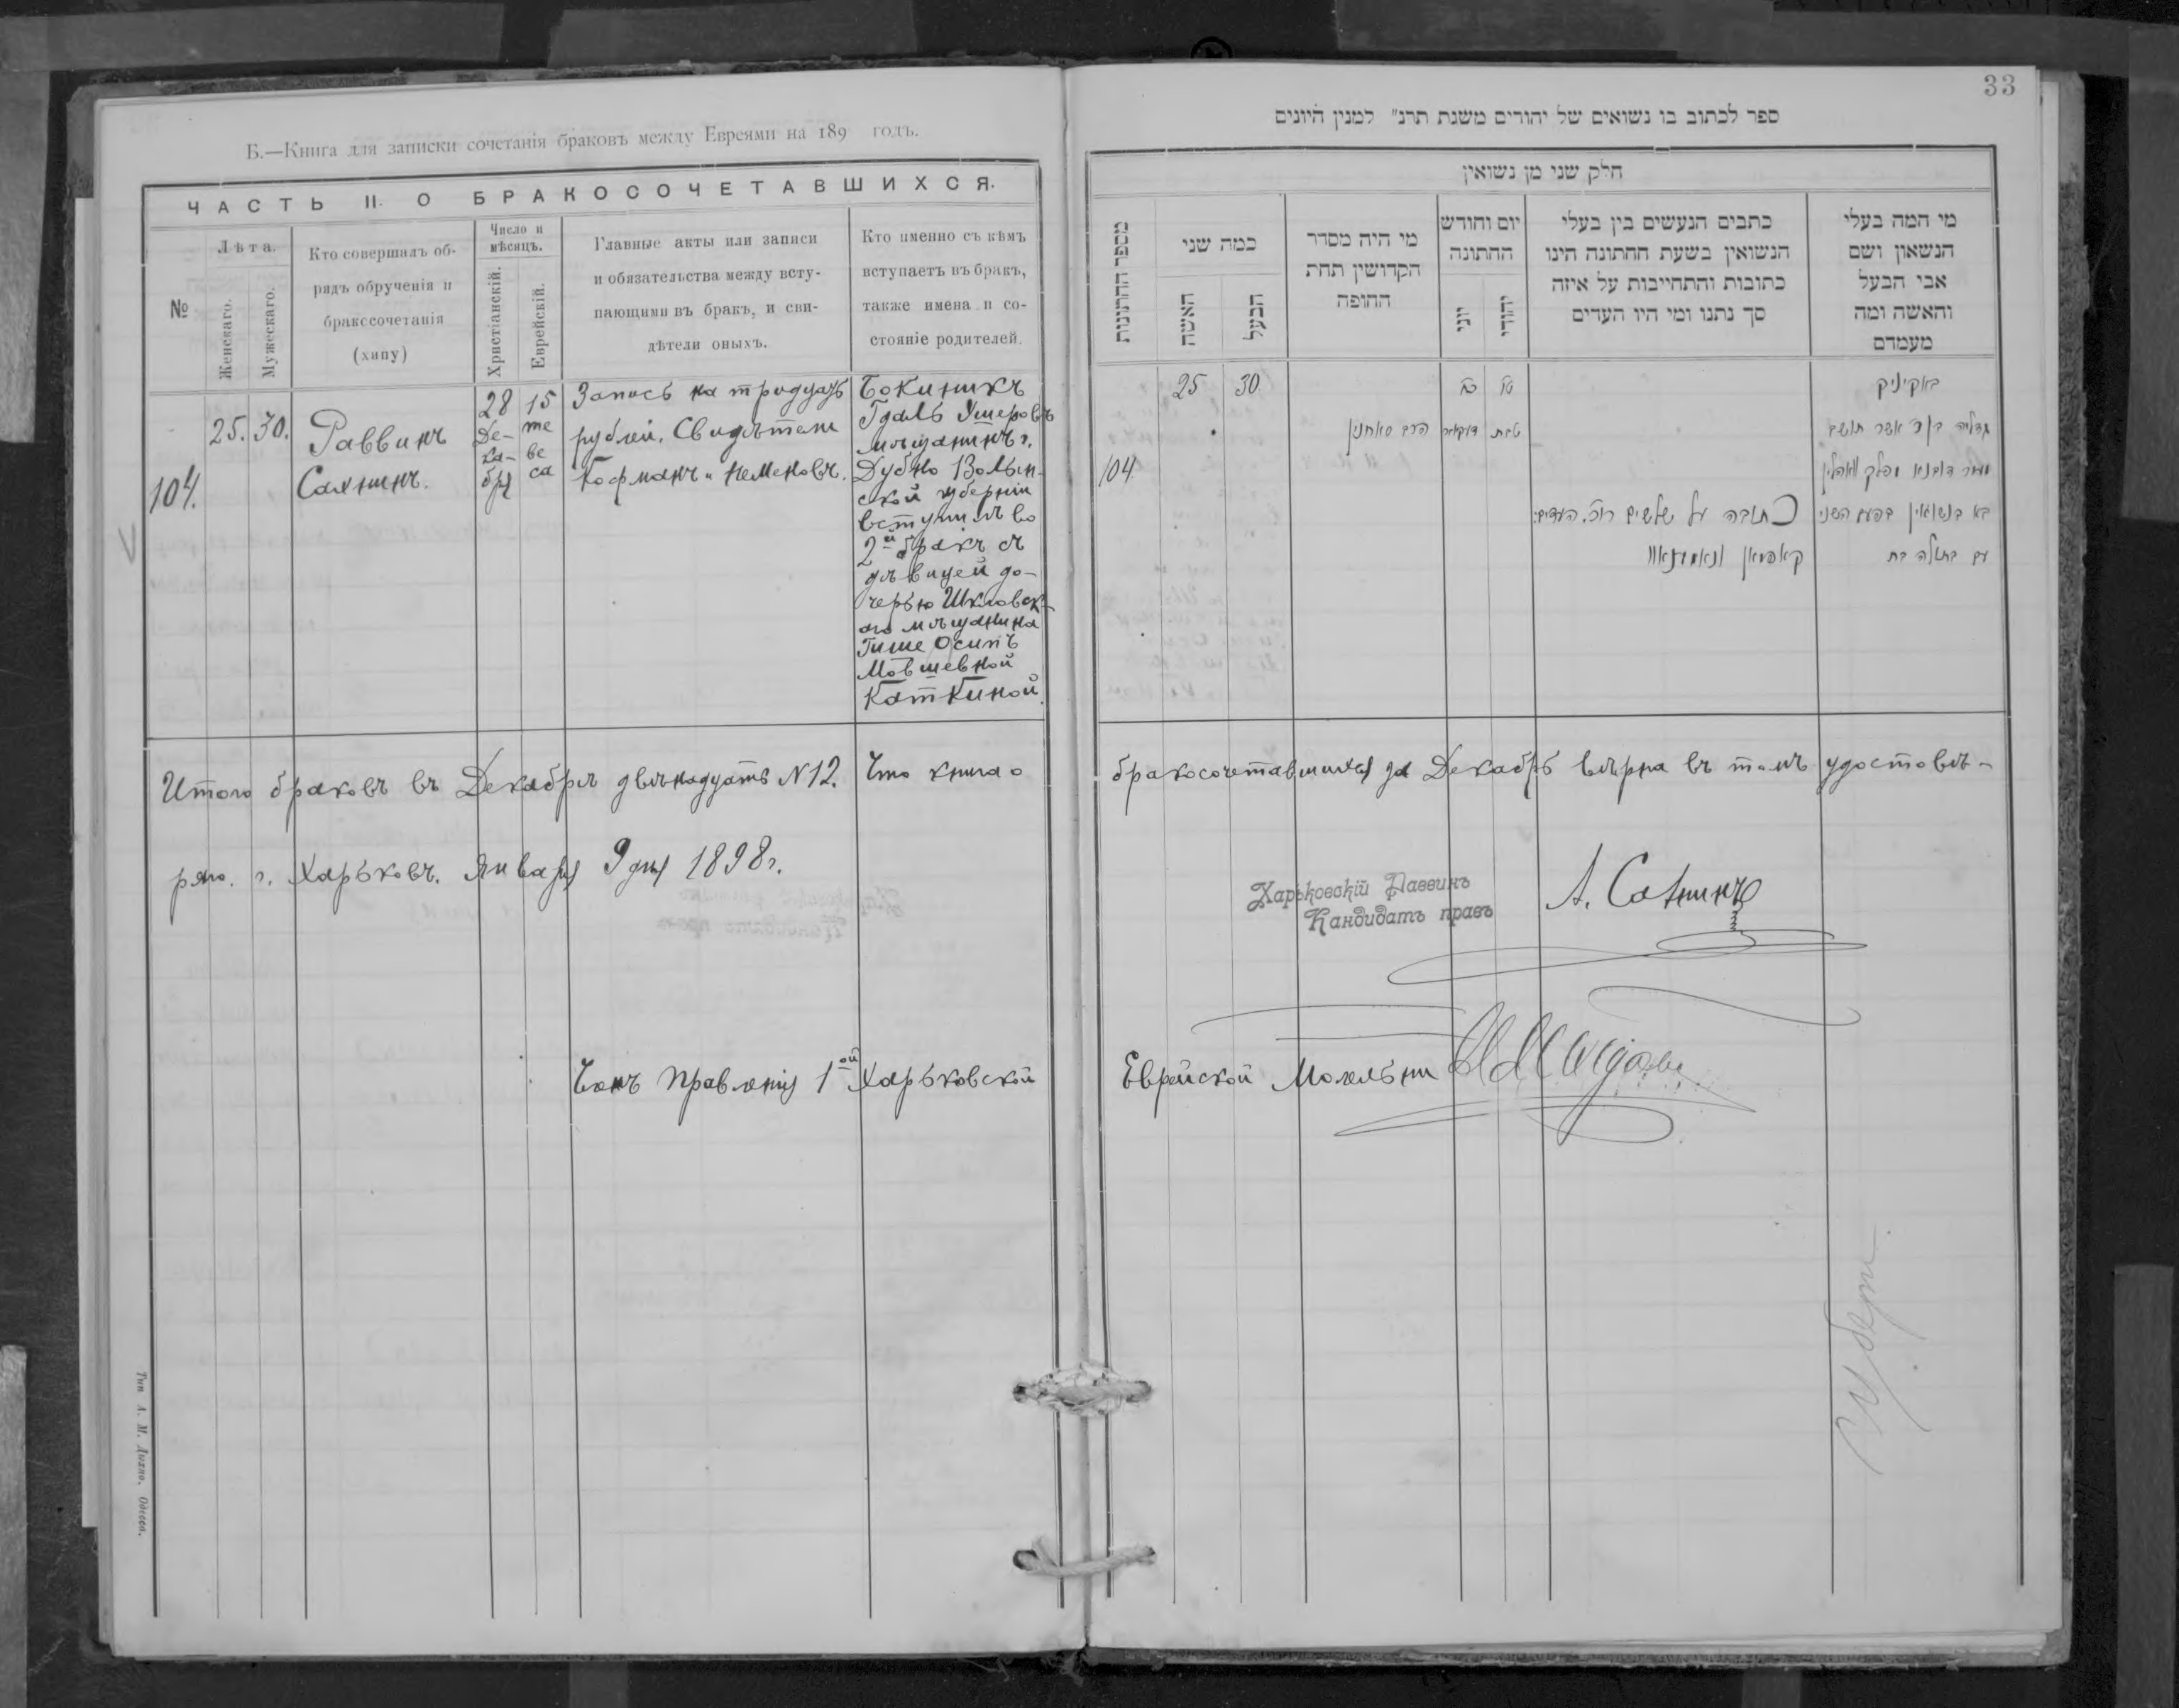 33
Б.—Книга для записки сочетанія браковъ между Евреями на 189 годъ.
ЧАСТЬ II. О БРАКОСОЧЕТАВШИХСЯ.
№
Лѣта.
Женскаго.
Мужескаго.
Кто совершалъ об-
рядъ обрученія и
бракссочетанія
(хипу)
Число и
мѣсяцъ.
Христіанскій.
Еврейскій.
Главные акты или записи
и обязательства между всту-
пающими въ бракъ, и сви-
дѣтели оныхъ.
Кто именно съ кѣмъ
вступаетъ въ бракъ,
также имена и со-
стояніе родителей.
104.
25.
30.
Раввинъ
Сахнинъ.
28
Де-
ка-
бря
15
те
ве
са
Запись на тридцать
рублей. Свидѣтели
Кофманъ и Неменовъ.
Бокиникъ
Гдаль Умеровъ
мѣщанинъ г.
Дубно Волын-
ской губерніи
вступилъ во
2й бракъ съ
дѣвицей до-
черью Шкловск-
аго мѣщанина
Гише Осипъ
Мовшевной
Каткиной.
ספר לכתוב בו נשואים של יהודים משנת תרנ״ למנין היונים
חלק שני מן נשואין
מספר החתונות
כמה שני
האשה
הבעל
מי היה מסדר
הקדושין תחת
החופה
יום וחודש
החתונה
יוני
יהודי
כתבים הנעשים בין בעלי
הנשואין בשעת החתונה הינו
כתובות והתחייבות על איזה
סך נתנו ומי היו העדים
מי המה בעלי
הנשאון ושם
אבי הבעל
והאשה ומה
מעמדם
104
25
30
הרב סאחנין
כח
דעקאבר
טו
טבת
כתובה על שלשים רו״כ. העדים:
קאפמאן ונאמענאוו
באקיניק
גדליה בן ר׳ אשר תושב
מעיר דובנא מפלך וואהלין
בא בנשואין בפעם השני
עם בתולה בת
Итого браковъ въ Декабрѣ двѣнадцать N12. Что книга о бракосочетавшихся за Декабрь вѣрна въ томъ удостовѣ-
ряю. г. Харьковъ. Января 9 дня 1898 г.
Харьковскій Раввинъ
Кандидатъ правъ
А. Сахнинъ
Членъ Правленія 1ой Харьковской Еврейской Молельни
Тип А. М. Дыхно, Одесса.